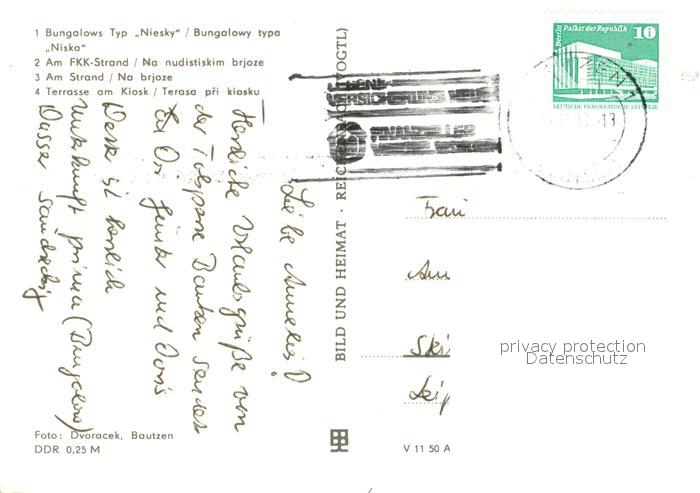 1 Bungalows Typ „Niesky" / Bungalowy typa
„Niska"
2 Am FKK-Strand / Na nudistiskim brjoze
3 Am Strand / Na brjoze
4 Terrasse am Kiosk / Terasa při kiosku
Berlin Palast der Republik
10
DEUTSCHE DEMOKRATISCHE REPUBLIK
VERSICHERUNG
FINANZIELLER
Liebe Annelies!
Herzliche Urlaubsgrüße von
der Talsperre Bautzen sendet
Dir Günter und Doris
Wetter ist herrlich
Unterkunft prima (Bungalow)
Wasser sandig
BILD UND HEIMAT · REICHENBACH (VOGTL)
Frau
Leip
privacy protection
Datenschutz
Foto: Dvoracek, Bautzen
DDR 0,25 M
V 11 50 A